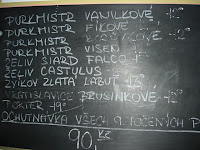 PURKMISTR VANILKOVÉ
PURKMISTR FÍKOVÉ
PURKMISTR
PURKMISTR VIŠEŇ
ŽELIV SIARD FALCO
ŽELIV CASTULUS
ZVÍKOV ZLATÁ LABUŤ 13°
BRUSINKOVÉ
POKER 19°
OCHUTNÁVKA VŠECH 9 TOČENÝCH P
90,- Kč